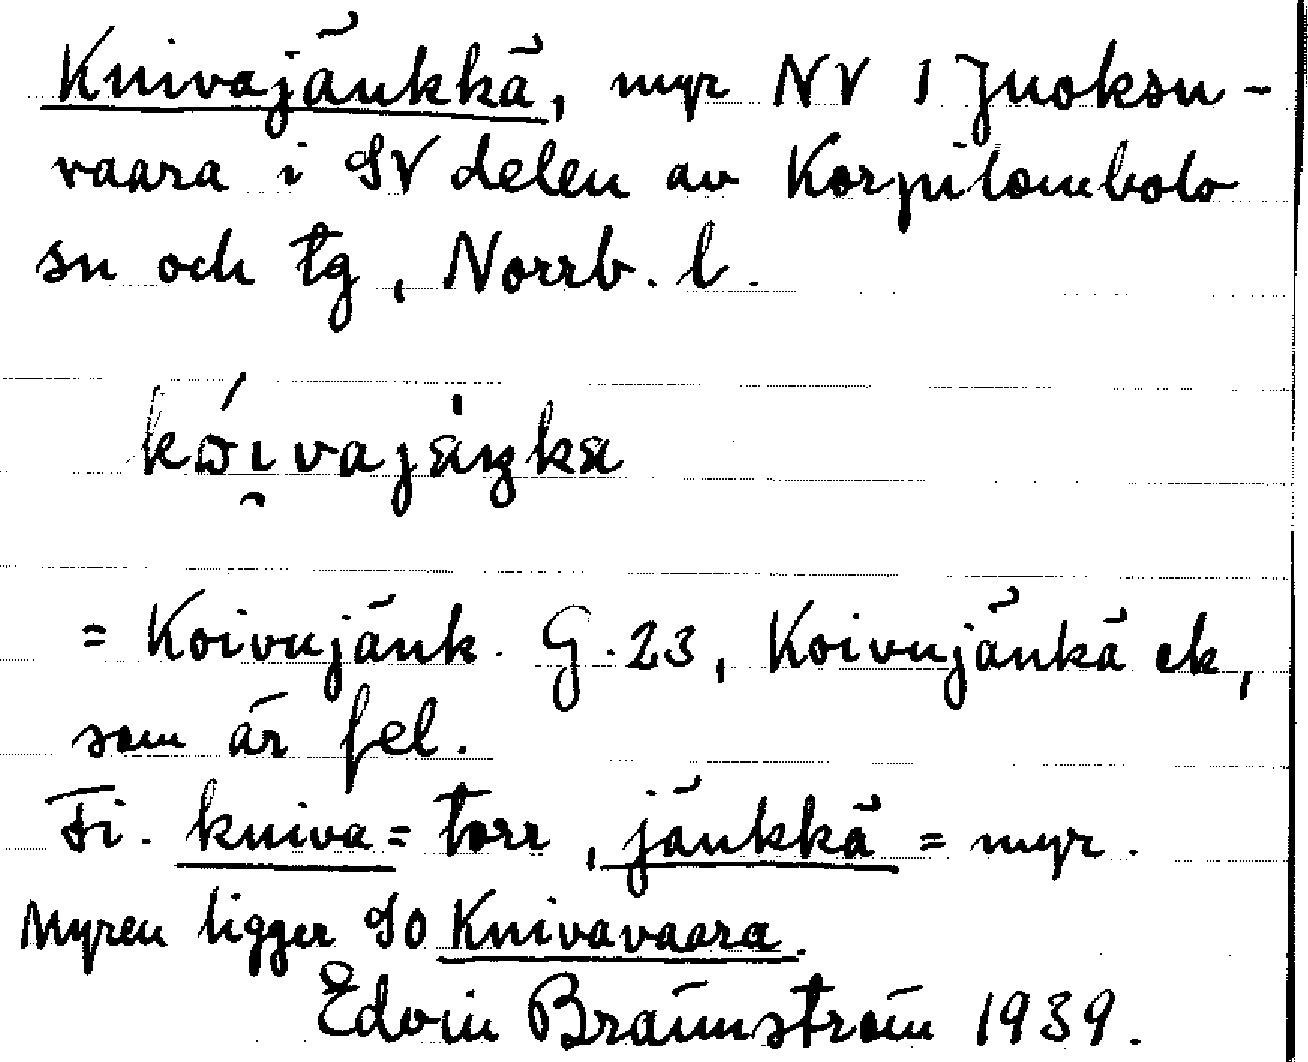 Kuivajänkkä, myr NV 1 Juoksu-
vaara i SV delen av Korpilombolo
sn och tg, Norrb. l.
= Koivujänk. G.23, Koivujänkä ek,
som är fel.
Fi. kuiva = torr, jänkkä = myr.
Myren ligger SO Kuivavaara.
Edvin Brännström 1939.